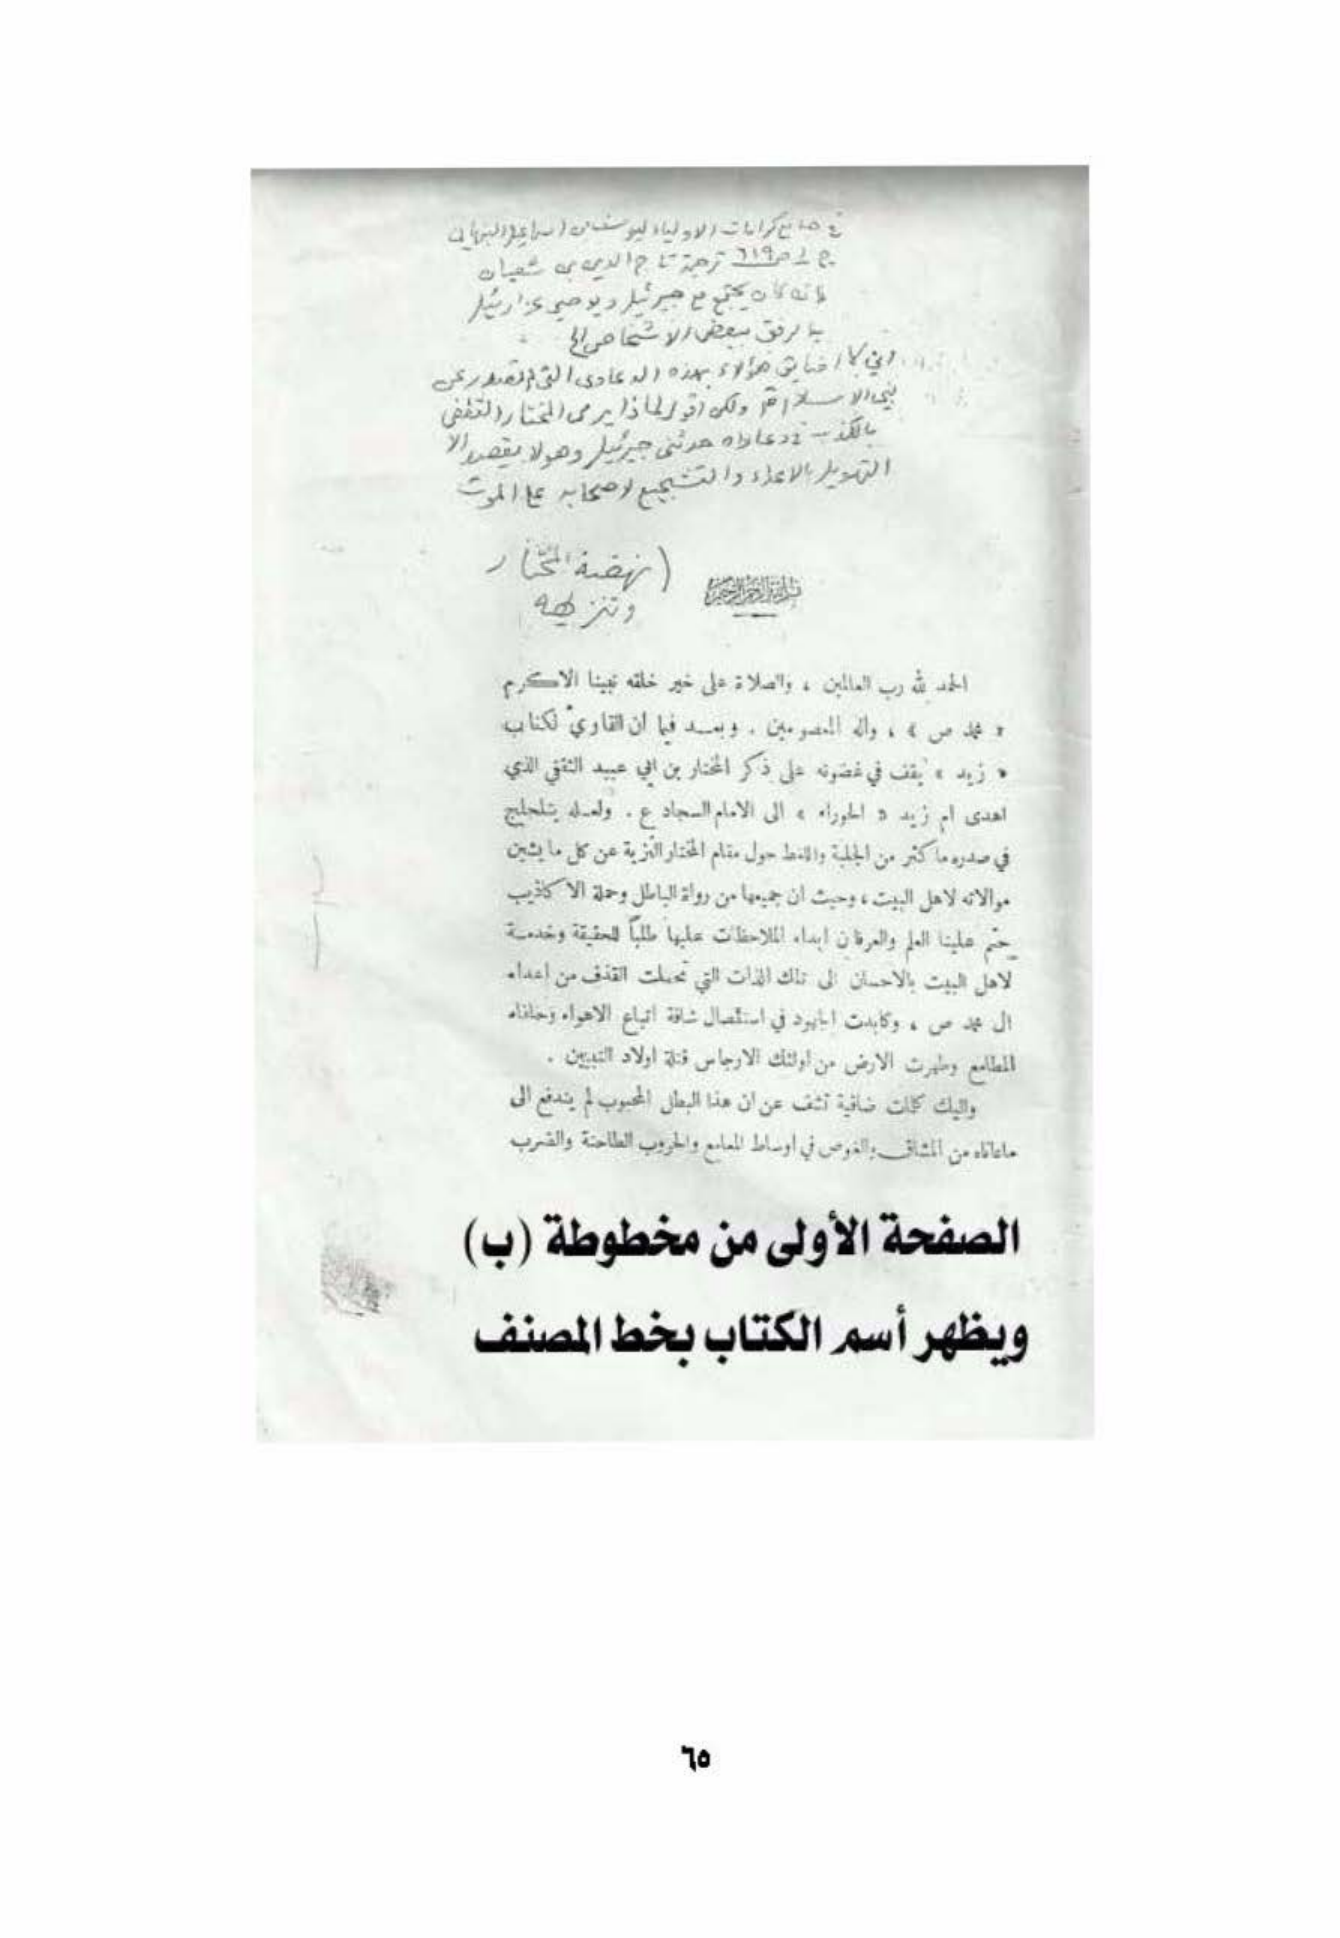 في جامع كرامات الاولياء ليوسف بن اسماعيل النبهاني
ج ١ ص ٦١٩ ترجمة تاج الدين بن شعبان
انه كان يجتمع مع جبرئيل ويوصي عزارئيل
بالرفق ببعض الاشخاص الخ
هؤلاء بهذه الدعاوى التي لم تصدر عن
نبي الاسلام ولكن اقول لماذا يرمى المختار الثقفي
بالكذب في دعاواه حدثني جبرئيل وهو لا يقصد الا
التهويل بالاعداء والتشجيع لاصحابه على الموت
(نهضة المختار
وتنزيهه
بسم الله الرحمن الرحيم
الحمد لله رب العالمين ، والصلاة على خير خلقه نبينا الاكرم
« محمد ص » ، وآله المعصومين . وبعد فبما ان القارئ لكتاب
« زيد » يقف في غضونه على ذكر المختار بن ابي عبيد الثقفي الذي
اهدى ام زيد « الحوراء » الى الامام السجاد ع . ولعله يتلجلج
في صدره ما كثر من الجلبة واللغط حول مقام المختار النزيه عن كل ما يشين
موالاته لاهل البيت ، وحيث ان جميعها من رواة الباطل وحملة الاكاذيب
يحتم علينا العلم والعرفان ابداء الملاحظات عليها طلباً للحقيقة وخدمة
لاهل البيت بالاحسان الى تلك الذات التي تحملت القذف من اعداء
آل محمد ص ، وكابدت الجهود في استئصال شافة اتباع الاهواء وحلفاء
المطامع وطهرت الارض من اولئك الارجاس قتلة اولاد النبيين .
واليك كلمات ضافية تشف عن ان هذا البطل المحبوب لم يندفع الى
ما عاناه من المشاق والغوص في اوساط المعامع والحروب الطاحنة والضرب
الصفحة الأولى من مخطوطة (ب)
ويظهر أسم الكتاب بخط المصنف
٦٥